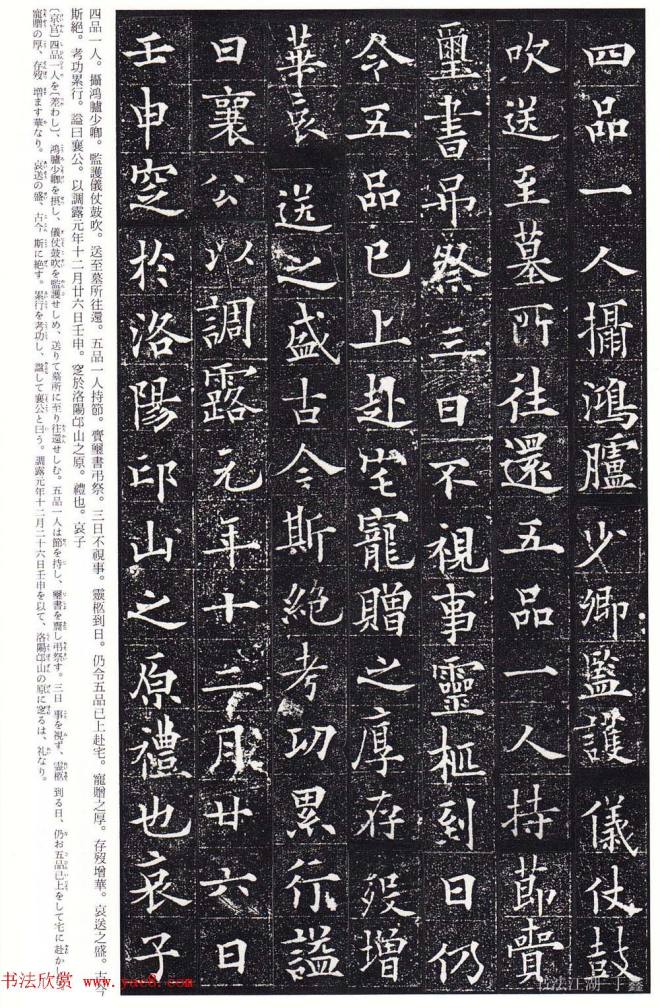 四品一人攝鴻臚少卿監護儀仗鼓
吹送至墓所往還五品一人持節賷
璽書吊祭三日不視事靈柩到日仍
令五品已上赴宅寵贈之厚存歿增
華哀送之盛古今斯絕考功累行謚
曰襄公以調露元年十二月廿六日
壬申窆於洛陽邙山之原禮也哀子
四品一人。攝鴻臚少卿。監護儀仗鼓吹。送至墓所往還。五品一人持節。賷璽書弔祭。三日不視事。靈柩到日。仍令五品已上赴宅。寵贈之厚。存歿增華。哀送之盛。古今
斯絕。考功累行。謚曰襄公。以調露元年十二月廿六日壬申。窆於洛陽邙山之原。禮也。哀子
〔京官〕四品一人を〔差わし〕、鴻臚少卿を摂し、儀仗鼓吹を監護せしめ、送りて墓所に至り往還せしむ。五品一人は節を持し、璽書を齎し弔祭す。三日 事を視ず、霊柩 到る日、仍お五品已上をして宅に赴か
寵贈の厚、存歿 増ます華なり。哀送の盛、古今 斯に絶す。累行を考功し、謚して襄公と曰う。調露元年十二月二十六日壬申を以て、洛陽邙山の原に窆るは、礼なり。
书法欣赏 www.yac8.com
书法江湖